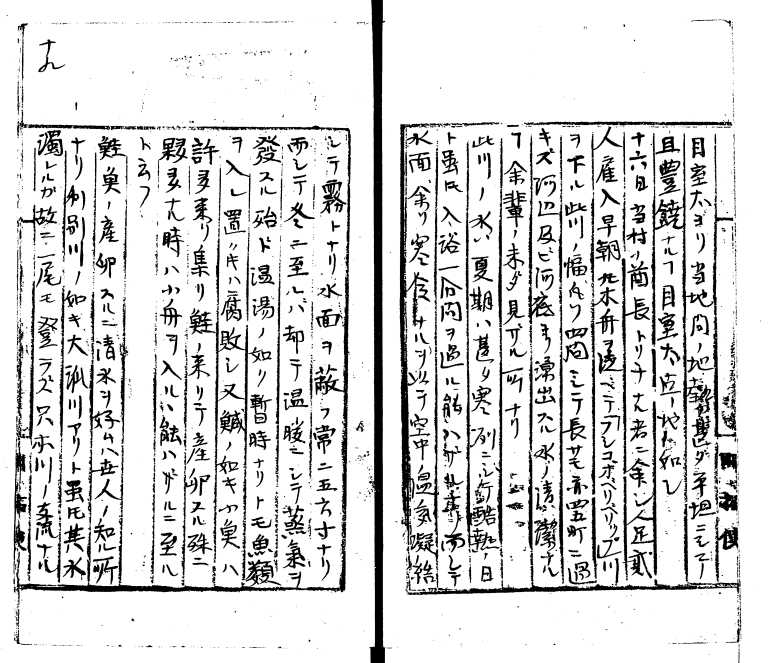 目室太ヨリ当地間ノ地勢甚ダ平坦ニシテ
且豊饒ナルフ目室太占ノ地ト如シ
十六日当村ノ酋長トリチナル者ニ余シ人足貳
人雇入早朝丸木舟ヲ ベテランコポペリベリップ川
ヲ下ル此川ノ幅凡ソ四間ニシテ長サモ亦四五町ニ過
キズ河辺及ビ河底ヨリ湧出スル水ノ清潔ナル
フ余輩ノ未ダ見ザル所ナリ
此川ノ水ハ夏期ハ甚ダ寒冽ニシテ酷熱ノ日
ト虽氏入浴一分間ヲ過ル能ハザル 而シテ
水面余リ寒冷ナルヲ以テ空中ノ温気凝結
シテ霧トナリ水面ヲ蔽フ常ニ五六寸ナリ
而シテ冬ニ至ルバ却テ温暖ニシテ蒸氣ヲ
發スル殆ド温湯ノ如ク暫時ナリトモ魚類
ヲ入レ置ノキハ腐敗シ又鰔ノ如キ小魚ハ
許多来リ集リ鮭ノ来リテ産卵スル殊ニ
夥多ナル時ハ小舟ヲ入ルハ能ハザルニ至ル
ト云フ
鮭魚ノ産卵スルニ清水ヲ好ムハ世人ノ知ル所
ナリ利別川ノ如キ大派川アリト虽氏其水
濁レルガ故ニ一尾モ登ラズ只本川ノ支流ナル